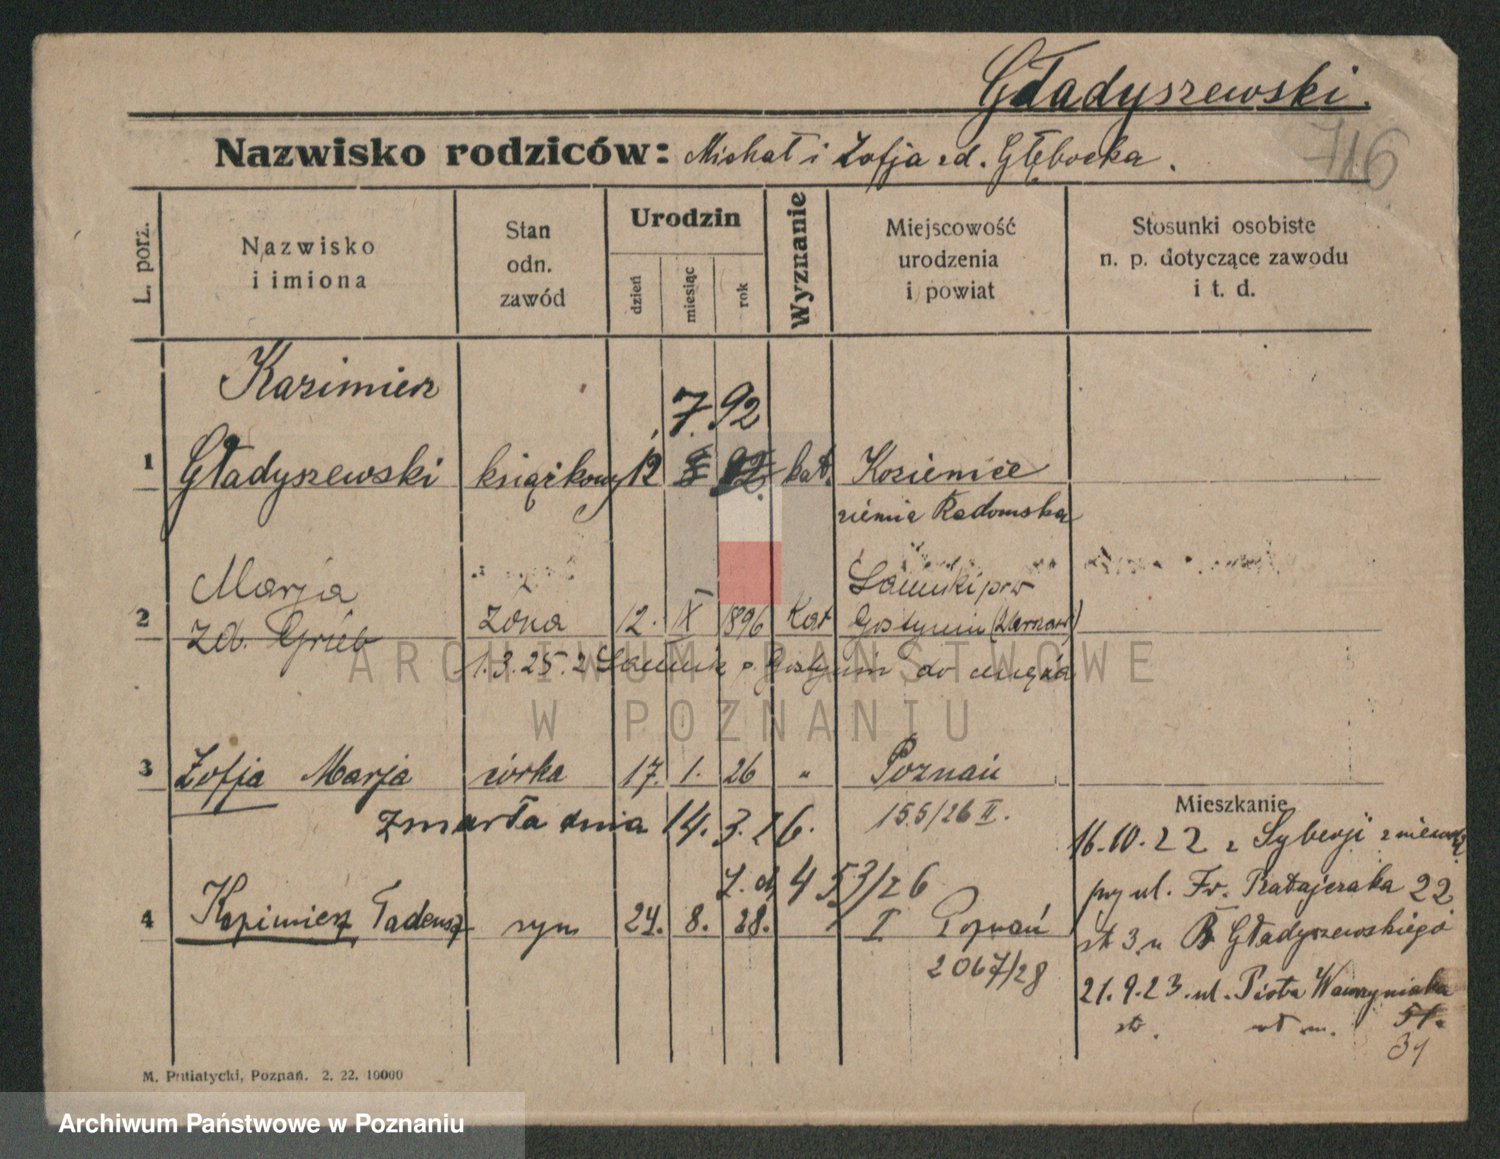 Gładyszewski.
716
Nazwisko rodziców: Michał i Zofja zd. Głębocka.
L. porz.
Nazwisko i imiona
Stan odn. zawód
Urodzin
dzień
miesiąc
rok
Wyznanie
Miejscowość urodzenia i powiat
Stosunki osobiste n. p. dotyczące zawodu i t. d.
Kazimierz
7. 92
1 Gładyszewski książkowy 12 kat. Kozienice
ziemia Radomska
Marja
2 zd. Grieb żona 12. X 1896 Kat Gostynin (Warszaw)
1.3.25. z p. Gostynin do męża
3 Zofja Marja córka 17. 1. 26 " Poznań
155/26 II.
zmarła dnia 14. 3. 26.
Z. d. 453/26
4 Kazimierz Tadeusz syn 24. 8. 28. I Poznań
2067/28
Mieszkanie
16.10.22 z Syberji z niewoli
przy ul. Fr. Ratajczaka 22
st 3 u Gładyszewskiego
21.9.23. ul. Piotra Wawrzyniaka
51.
31
M. Putiatycki, Poznań. 2. 22. 10000
ARCHIWUM PAŃSTWOWE
W POZNANIU
Archiwum Państwowe w Poznaniu